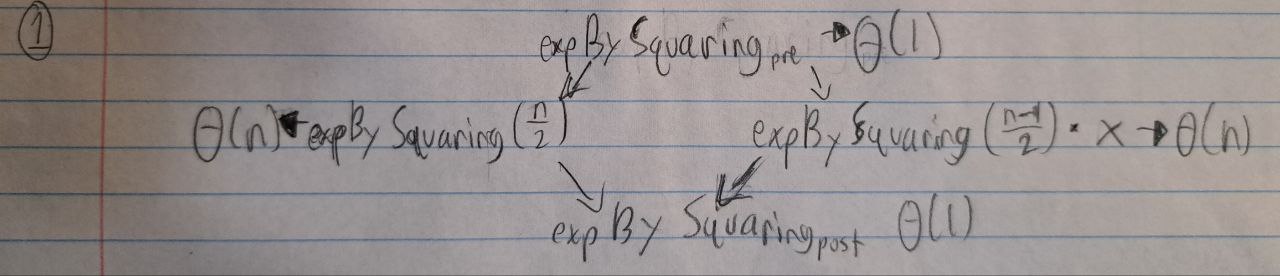 ① expBySquaring_pre → Θ(1)
Θ(n) ← expBySquaring(n/2) expBySquaring((n-1)/2) · x → Θ(n)
expBySquaring_post Θ(1)